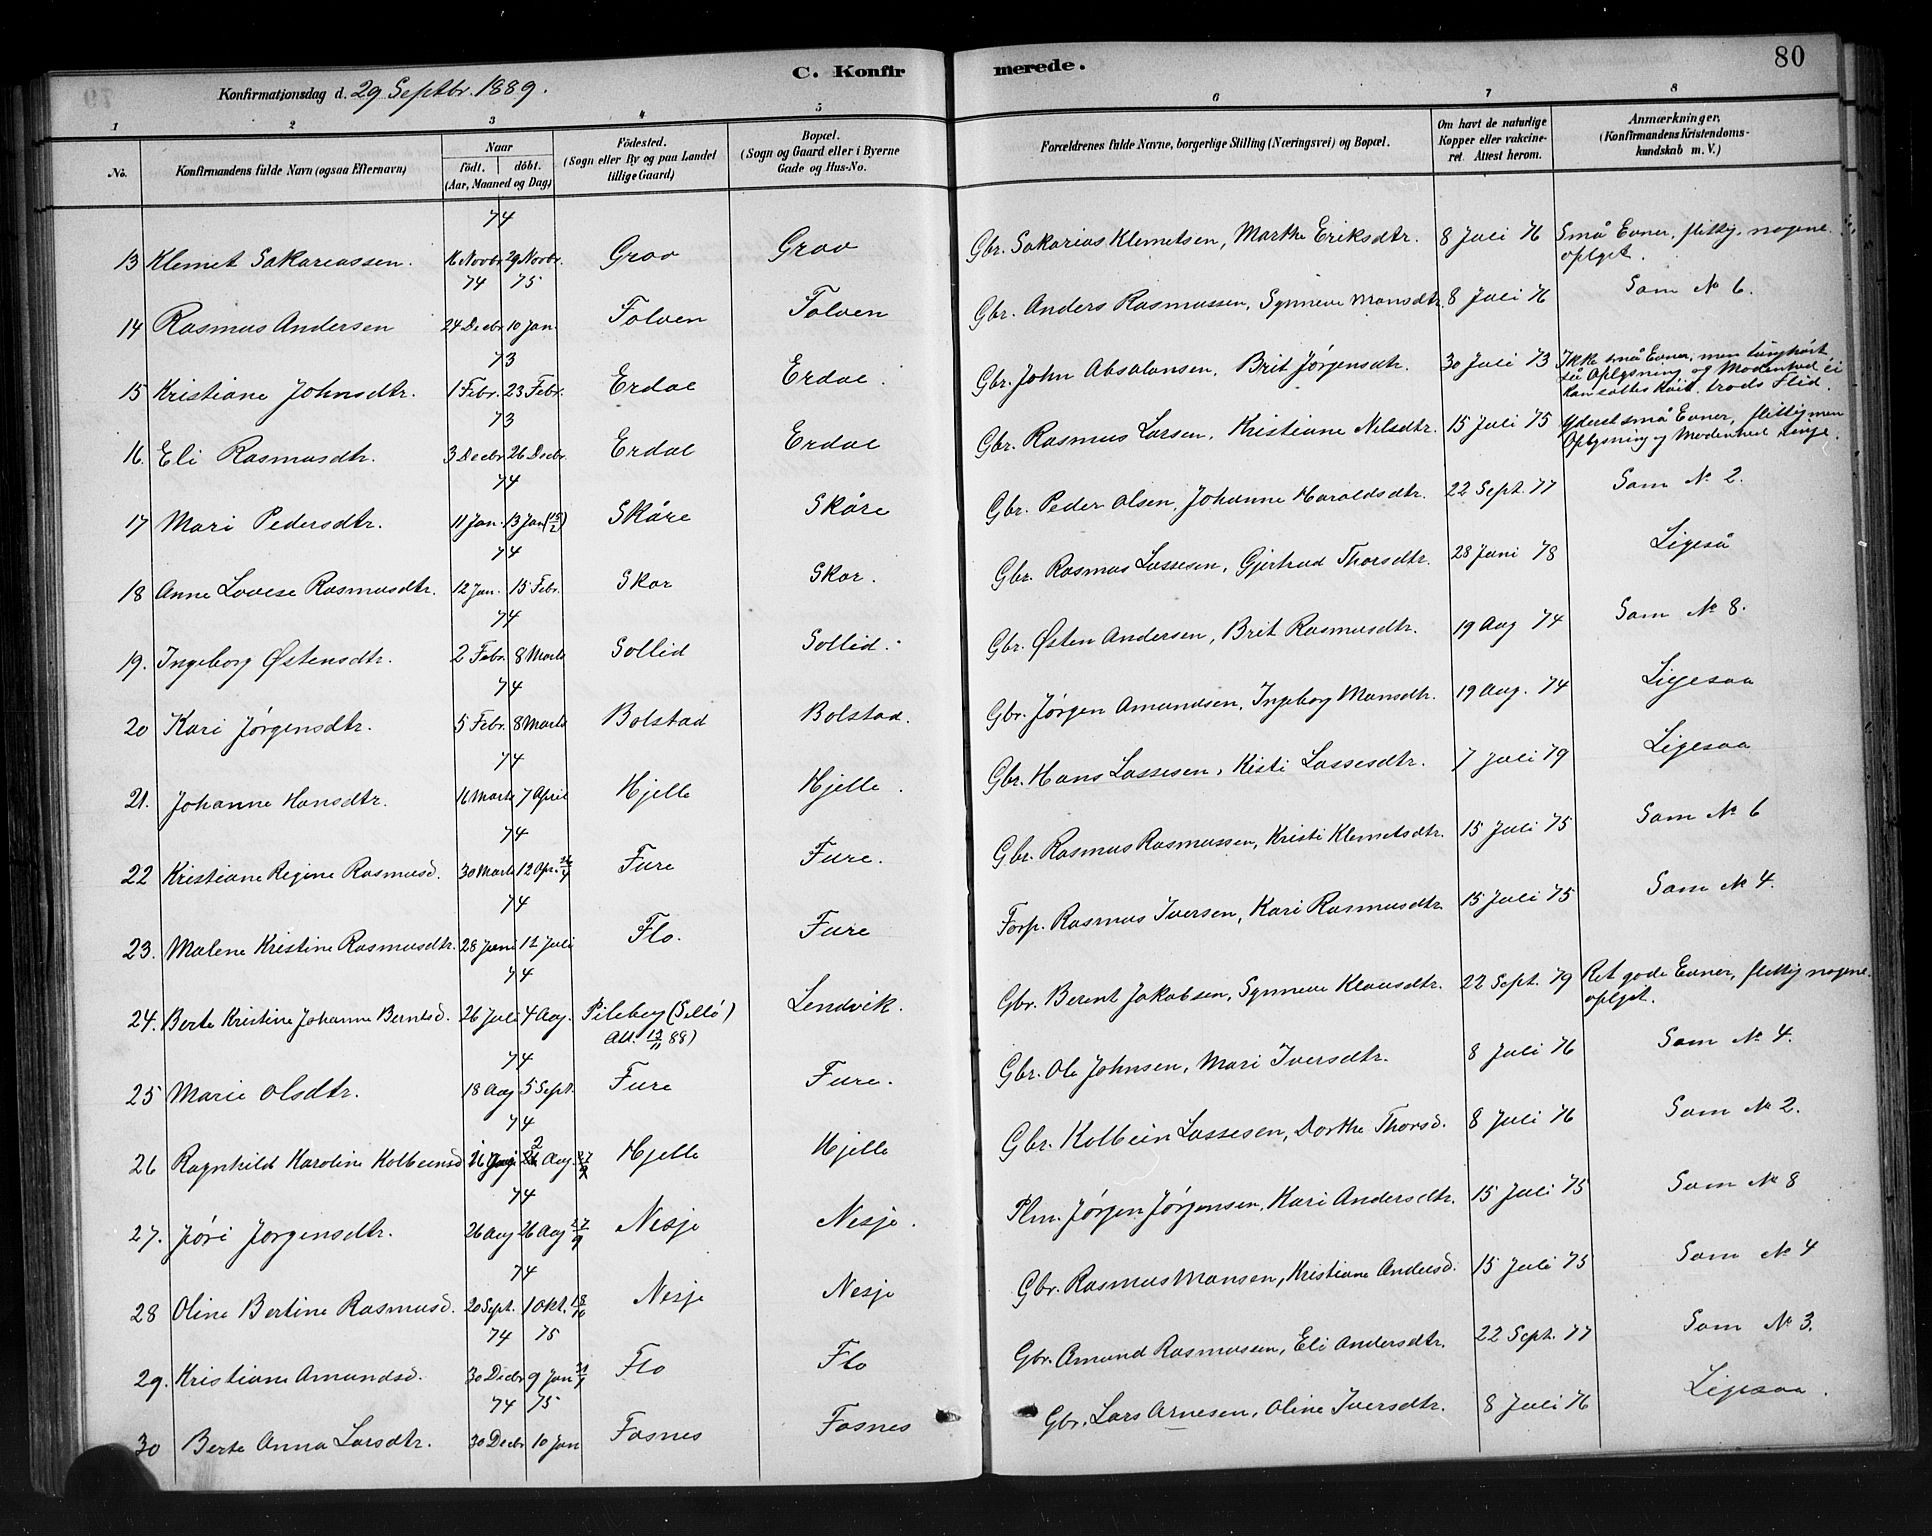 C. Konfirmerede.
80
Konfirmationsdag d. 29 Septbr. 1889.
1 2 3 4 5 6 7 8
No.
Konfirmandens fulde Navn (ogsaa Efternavn)
Naar
Födt. döbt.
(Aar, Maaned og Dag)
Födested.
(Sogn eller By og paa Landet tillige Gaard)
Bopæl.
(Sogn og Gaard eller i Byerne Gade og Hus-No.
Forældrenes fulde Navne, borgerlige Stilling (Næringsvei) og Bopæl.
Om havt de naturlige Kopper eller vakcineret. Attest herom.
Anmærkninger,
(Konfirmandens Kristendomskundskab m. V.)
74
13 Klemet Sakariassen. 16 Novbr. 29 Novbr. Grov Grov Gbr. Sakarias Klemetsen, Marthe Eriksdtr. 8 Juli 76 Små Evner, flittig, nogenl. oplyst.
74 75
14 Rasmus Andersen 24 Decbr 10 Jan. Folven Folven Gbr. Anders Rasmussen, Synneve Monsdtr. 8 Juli 76 Som No 6.
73
15 Kristiane Johnsdtr. 1 Febr. 23 Febr. Erdal Erdal. Gbr. John Absalonsen, Brit Jørgensdtr. 30 Juli 73 Ikke små Evner, men tunghört, Oplysning og Modenhed ei kan sættes höit, trods Flid.
73
16. Eli Rasmusdtr. 3 Decbr 26 Decbr. Erdal Erdal Gbr. Rasmus Larsen, Kristiane Nilsdtr. 15 Juli 75 Yderst små Evner, flittig men Oplysning og Modenhed ringe.
74
17 Mari Pedersdtr. 11 Jan. 13 Jan (15/2) Skåre Skåre Gbr. Peder Olsen, Johanne Haraldsdtr. 22 Sept. 77 Som No 2.
74
18 Anne Lovise Rasmusdtr. 12 Jan. 15 Febr. Skor Skor. Gbr. Rasmus Lassesen, Gjertrud Thorsdtr. 28 Juni 78 Ligeså
74
19. Ingeborg Østensdtr. 2 Febr. 8 Marts Sollid Sollid. Gbr. Østen Andersen, Brit Rasmusdtr. 19 Aug 74 Som No 8.
74
20 Kari Jørgensdtr. 5 Febr. 8 Marts Bolstad Bolstad. Gbr. Jørgen Amundsen, Ingeborg Monsdtr. 19 Aug. 74 Ligesaa
74
21. Johanne Hansdtr. 16 Marts 7 April Hjelle Hjelle. Gbr. Hans Lassesen, Kisti Lassesdtr. 7 Juli 79 Ligesaa
74
22 Kristiane Regine Rasmusd. 30 Marts 12 Apr. 26/4 Fure Fure. Gbr. Rasmus Rasmussen, Kristi Klemetsdtr. 15 Juli 75 Som No 6
74
23. Malene Kristine Rasmusdtr. 28 Juni 12 Juli Flo. Fure Forp. Rasmus Iversen, Kari Rasmusdtr. 15 Juli 75 Som No 4.
74
24. Berte Kristine Johanne Berntsd. 26 Juli 4 Aug. Pileberg (Sellö) Att. 13/11 88) Lendvik. Gbr. Berent Jakobsen, Synneve Klausdtr. 22 Sept. 79 Ret gode Evner, flittig nogenl. oplyst.
74
25 Marie Olsdtr. 18 Aug 5 Sept. Fure Fure. Gbr. Ole Johnsen, Mari Iversdtr. 8 Juli 76 Som No 4.
74
26 Ragnhild Karoline Kolbeinsd 26 Aug. 27/9 Hjelle Hjelle Gbr. Kolbein Lassesen, Dorthe Thorsd. 8 Juli 76 Som No 2.
74
27. Jöri Jørgensdtr. 26 Aug 26 Aug 27/9 Nesje Nesje. Plm. Jørgen Jørgensen, Kari Andersdtr. 15 Juli 75 Som No 8
74
28 Oline Bertine Rasmusd. 20 Sept. 1 Okt. 18/10 Nesje Nesje Gbr. Rasmus Monsen, Kristiane Andersd. 15 Juli 75 Som No 4
74 75
29. Kristiane Amundsd. 30 Decbr 9 Jan 31/1 Flo Flo Gbr. Amund Rasmussen, Eli Andersdtr. 22 Sept. 77 Som No 3.
74 75
30 Berte Anna Larsdtr. 30 Decbr 10 Jan Fosnes Fosnes Gbr. Lars Arnesen, Oline Iversdtr. 8 Juli 76 Ligesaa.